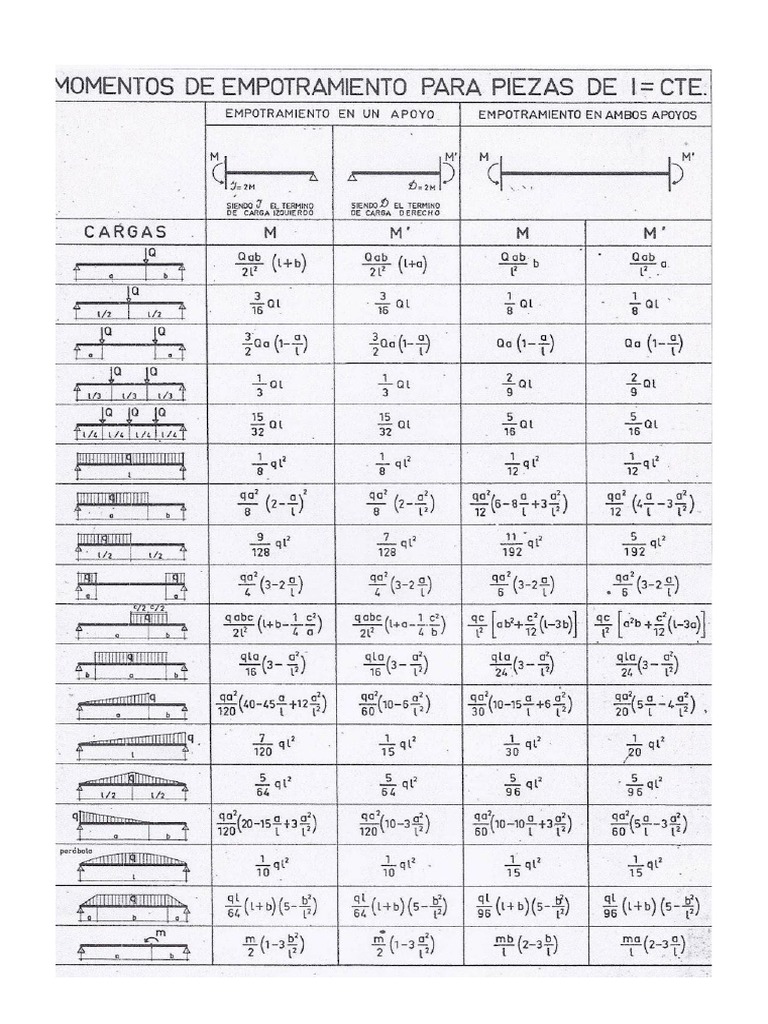 MOMENTOS DE EMPOTRAMIENTO PARA PIEZAS DE I=CTE.
EMPOTRAMIENTO EN UN APOYO EMPOTRAMIENTO EN AMBOS APOYOS
M M' M M'
J=2M D=2M
SIENDO J EL TERMINO DE CARGA IZQUIERDO SIENDO D EL TERMINO DE CARGA DERECHO
CARGAS M M' M M'
Q a b Qab/2l² (l+b) Qab/2l² (l+a) Qab/l² b Qab/l² a
Q l/2 l/2 3/16 Ql 3/16 Ql 1/8 Ql 1/8 Ql
Q Q a a 3/2 Qa(1-a/l) 3/2 Qa(1-a/l) Qa(1-a/l) Qa(1-a/l)
Q Q l/3 l/3 l/3 1/3 Ql 1/3 Ql 2/9 Ql 2/9 Ql
Q Q Q l/4 l/4 l/4 l/4 15/32 Ql 15/32 Ql 5/16 Ql 5/16 Ql
q l 1/8 ql² 1/8 ql² 1/12 ql² 1/12 ql²
q a b qa²/8 (2-a/l)² qa²/8 (2-a²/l²) qa²/12 (6-8a/l+3a²/l²) qa²/12 (4a/l-3a²/l²)
q l/2 l/2 9/128 ql² 7/128 ql² 11/192 ql² 5/192 ql²
q q a a qa²/4 (3-2a/l) qa²/4 (3-2a/l) qa²/6 (3-2a/l) qa²/6 (3-2a/l)
c/2 c/2 q a b qabc/2l² (l+b-1/4 c²/a) qabc/2l² (l+a-1/4 c²/b) qc/l² [ab²+c²/12(l-3b)] qc/l² [a²b+c²/12(l-3a)]
q b a b qla/16 (3-a²/l²) qla/16 (3-a²/l²) qla/24 (3-a²/l²) qla/24 (3-a²/l²)
q a b qa²/120 (40-45a/l+12a²/l²) qa²/60 (10-6a²/l²) qa²/30 (10-15a/l+6a²/l²) qa²/20 (5a/l-4a²/l²)
q l 7/120 ql² 1/15 ql² 1/30 ql² 1/20 ql²
q l/2 l/2 5/64 ql² 5/64 ql² 5/96 ql² 5/96 ql²
q a b qa²/120 (20-15a/l+3a²/l²) qa²/120 (10-3a²/l²) qa²/60 (10-10a/l+3a²/l²) qa²/60 (5a/l-3a²/l²)
parábola q l 1/10 ql² 1/10 ql² 1/15 ql² 1/15 ql²
q a b a ql/64 (l+b)(5-b²/l²) ql/64 (l+b)(5-b²/l²) ql/96 (l+b)(5-b²/l²) ql/96 (l+b)(5-b²/l²)
m a b m/2 (1-3b²/l²) m/2 (1-3a²/l²) mb/l (2-3b/l) ma/l (2-3a/l)